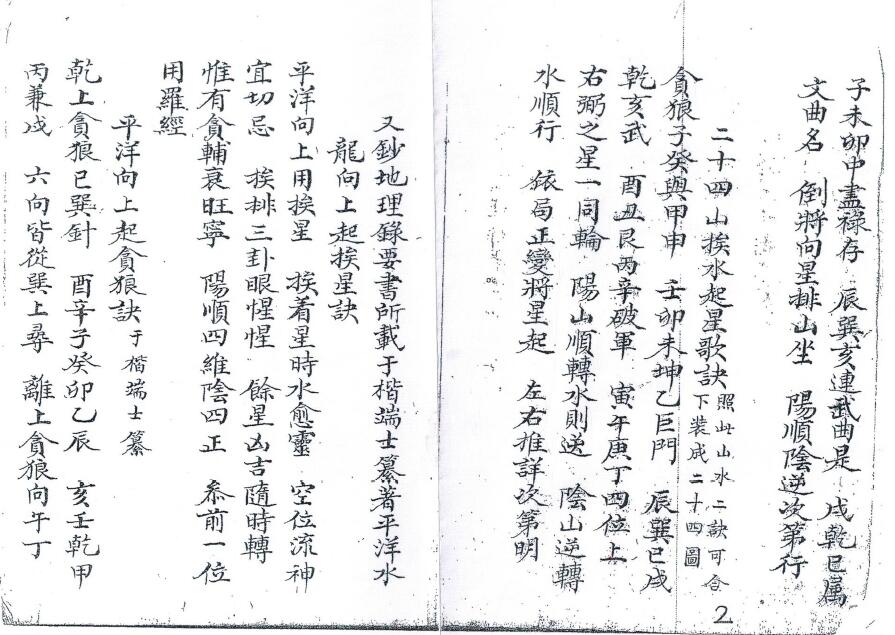 子未卯中盡祿存　辰巽亥連武曲是　戌乾巳屬
文曲名　倒將向星排山坐　陽順陰逆次第行
二十四山挨水起星歌訣 照此山水二款可合
下裝成二十四圖
貪狼子癸與甲申　壬卯未坤乙巨門　辰巽巳戌
乾亥武　酉丑艮丙辛破軍　寅午庚丁四位上
右弼之星一同輪　陽山順轉水則逆　陰山逆轉
水順行　依局正變將星起　左右推詳次第明
2
又鈔地理錄要書所載于楷端士纂著平洋水
龍向上起挨星訣
平洋向上用挨星　挨着星時水愈靈　空位流神
宜切忌　挨排三卦眼惺惺　餘星凶吉隨時轉
惟有貪輔衰旺寧　陽順四維陰四正　叅前一位
用羅經
平洋向上起貪狼訣 于楷端士纂
乾上貪狼巳巽針　酉辛子癸卯乙辰　亥壬乾甲
丙兼戌　六向皆從巽上尋　離上貪狼向午丁